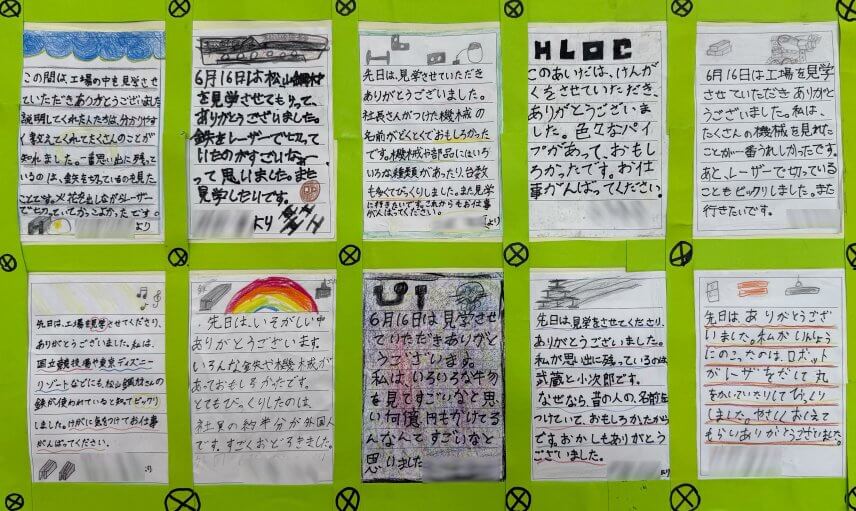 この間は、工場の中を見学させ
ていただきありがとうございました
説明してくれた人たちは、分かりやす
く教えてくれてたくさんのことが
知れました。一番思い出に残って
いるのは、鉄を切っているのを見た
ことです。火花を出しながらレーザー
で切っていてかっこよかったです。
より
6月16日は松山鋼材
を見学させてもらって、
ありがとうございました。
鉄をレーザーで切って
いたのがすごいなぁー
って思いました。また
見学したいです。
より
先日は、見学させていただき
ありがとうございました。
社長さんがつけた機械の
名前がとくとくでおもしろかった
です。機械や部品にはいろ
いろな種類があったり、台数
も多くてびっくりしました。また見学
に行きたいです。これからもお仕事
がんばってください。
より
HLOC
このあいだは、けんが
くをさせていただき、
ありがとうございま
した。色々なパイ
プがあって、おもし
ろかったです。お仕
事がんばってください。
6月16日は工場を見学
させていただきありがと
うございました。私は、
たくさんの機械を見れた
ことが一番うれしかったです。
あと、レーザーで切っている
こともビックリしました。また
行きたいです。
先日は、工場を見学させてくださり、
ありがとうございました。私は、
国立競技場や東京ディズニー
リゾートなどにも、松山鋼材さんの
鉄が使われていると知ってビックリ
しました。けがに気をつけてお仕事
がんばってください。
より
先日は、いそがしい中
ありがとうございます。
いろんな鉄や機械が
あっておもしろかったです。
とてもびっくりしたのは、
社員の約半分が外国人
です。すごくおどろきました。
UT
6月16日は見学させ
ていただきありがと
うございます。
私は、いろいろな物
を見てすごいなと思
い何億円もかけてる
なんてすごいなと
思いました
先日は、見学をさせてくださり、
ありがとうございました。
私が思い出に残っているのは
武蔵と小次郎です。
なぜなら、昔の人の、名前を
つけていて、おもしろかったから
です。おかしもありがとう
ございました。
より
先日は ありがとうござい
ました。私がいんしょう
にのこったのは、ロボット
がレーザをだして丸
をかいていたりしてびっくり
しました。やさしくおしえて
もらいありがとうございました。